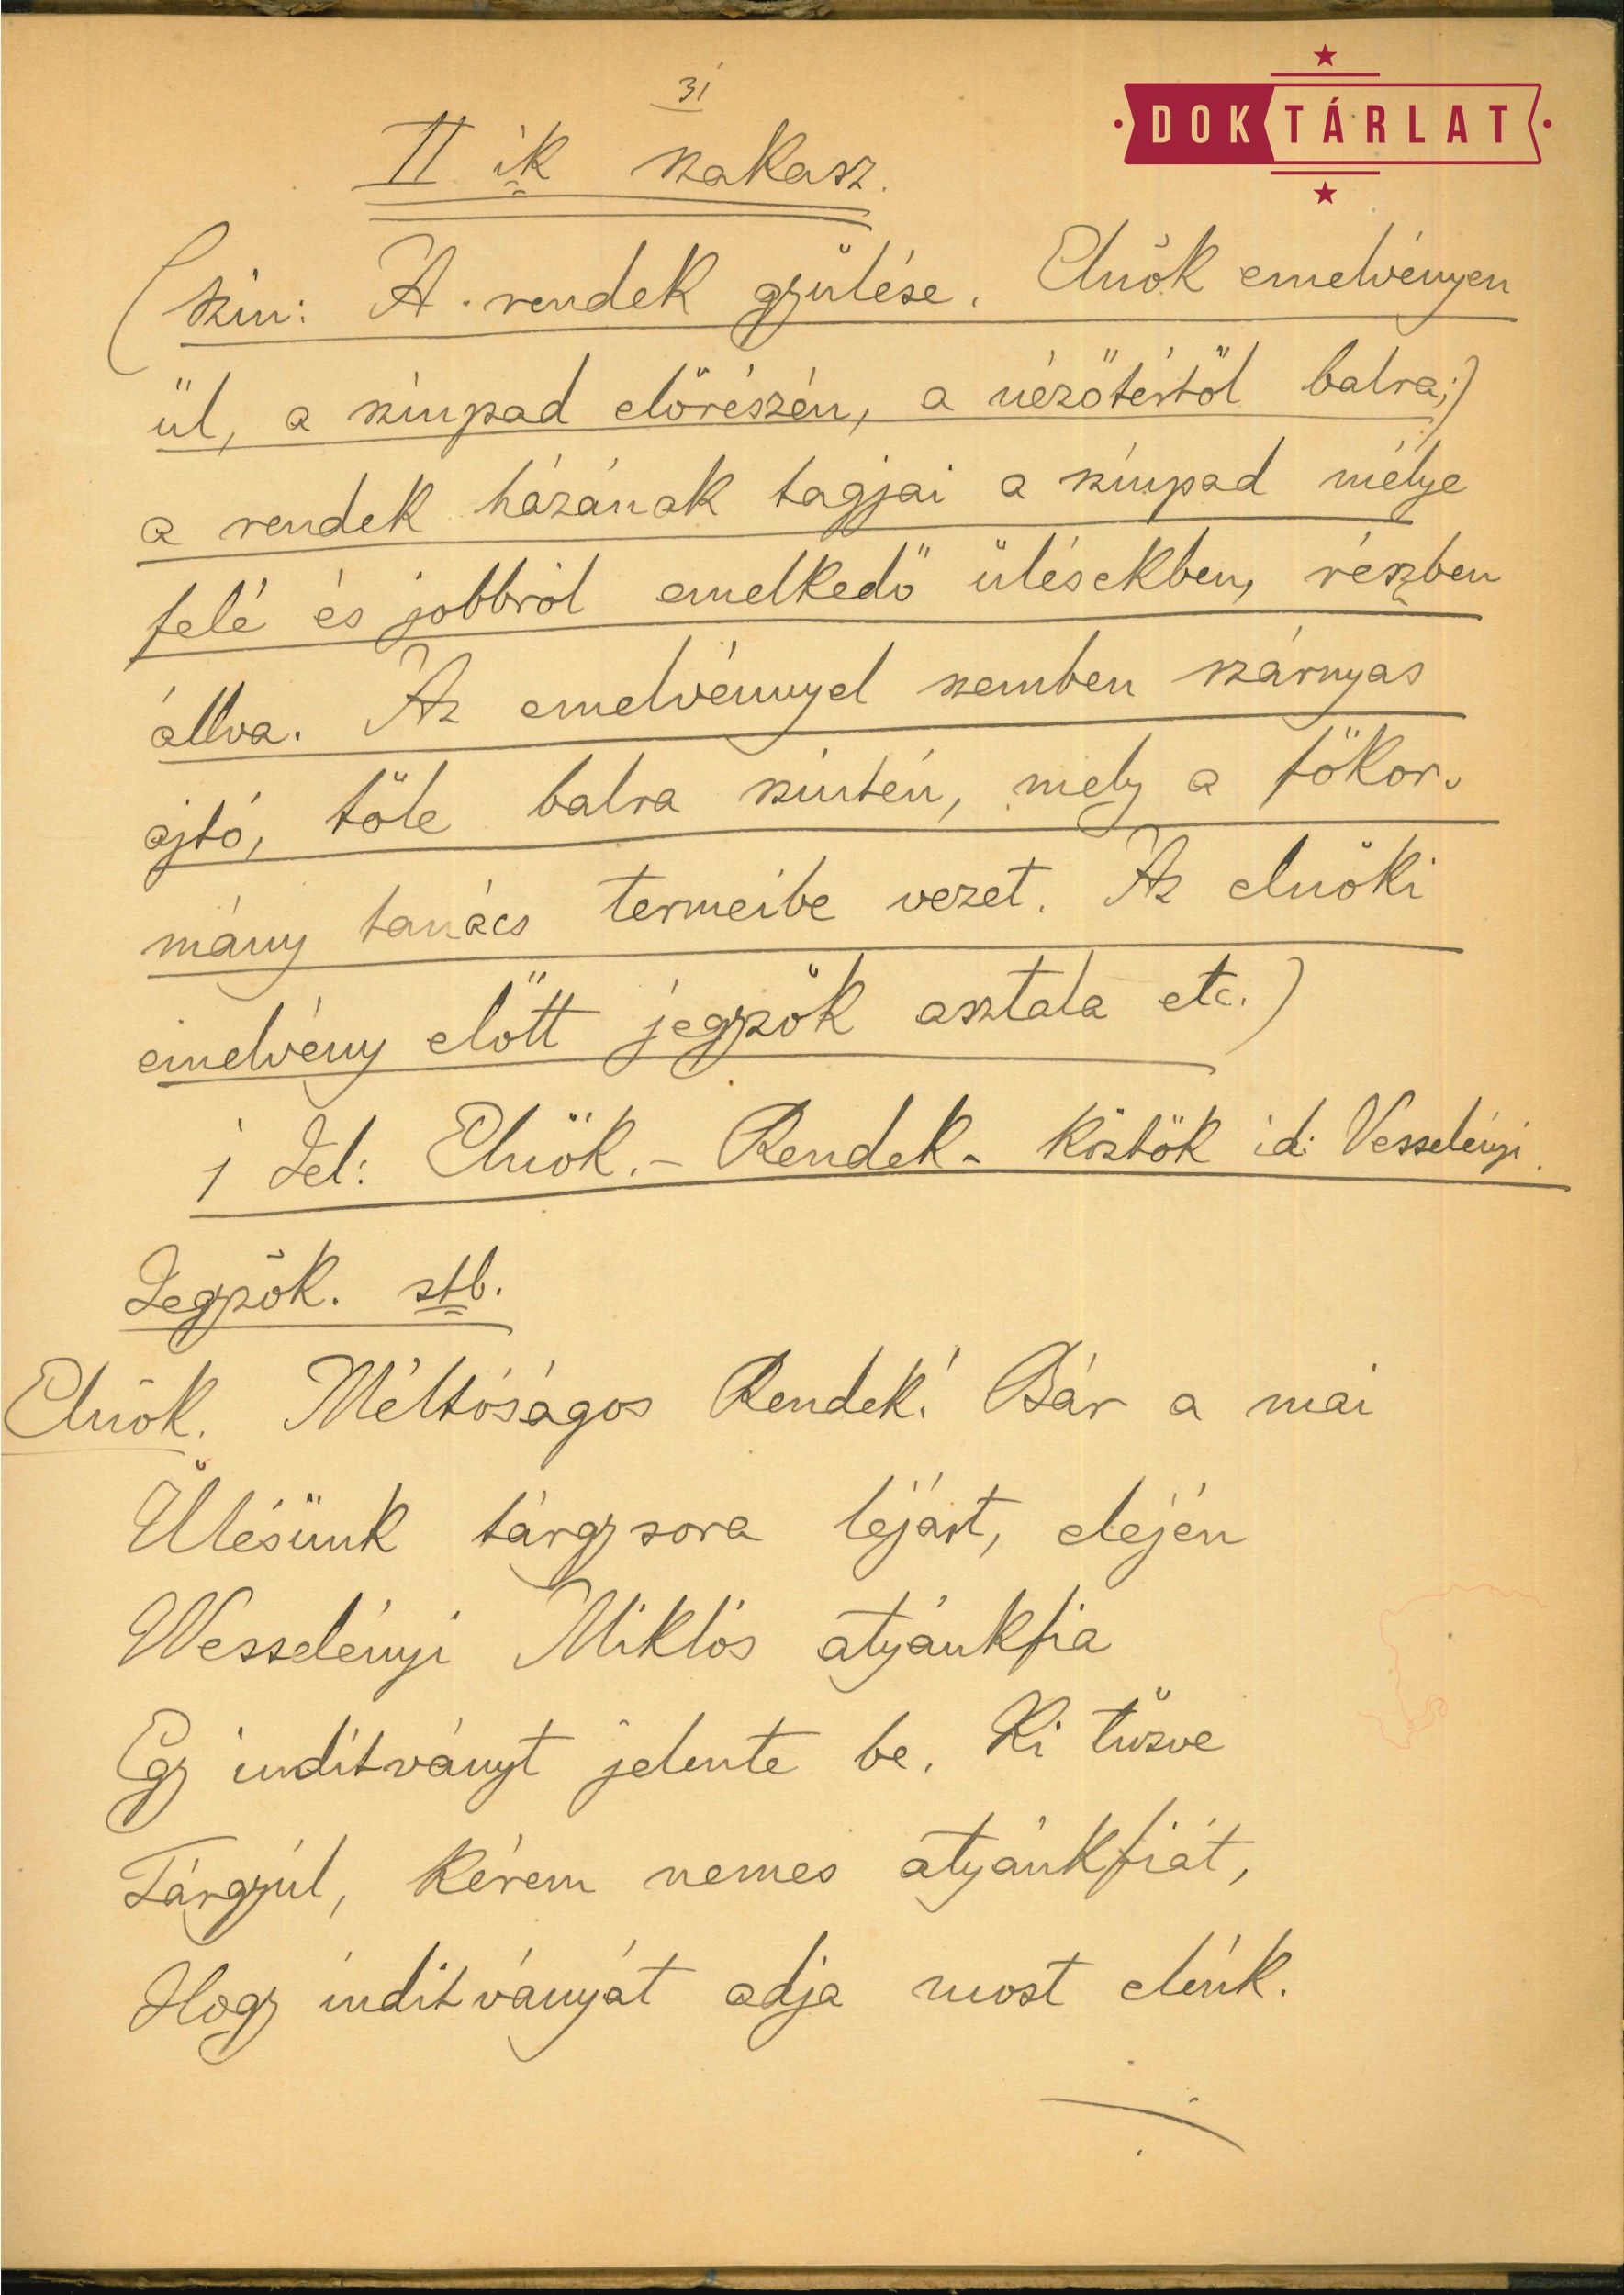 31
DOKTÁRLAT
II ik szakasz.
(szin: A rendek gyülése. Elnök emelvényen
ül, a szinpad előrészén, a nézőtértől balra;)
a rendek házának tagjai a szinpad mélye
felé és jobbról emelkedő ülésekben, részben
állva. Az emelvénnyel szemben szárnyas
ajtó, tőle balra szintén, mely a főkor-
mány tanács termeibe vezet. Az elnöki
emelvény előtt jegyzők asztala etc.)
1 Jel: Elnök. – Rendek – köztök id: Vesselényi.
Jegyzők. stb.
Elnök. Méltóságos Rendek! Bár a mai
Ülésünk tárgysora lejárt, elején
Wesselényi Miklós atyánkfia
Egy inditványt jelente be. Ki tüzve
Tárgyúl, kérem nemes atyánkfiát,
Hogy inditványát adja most elénk.